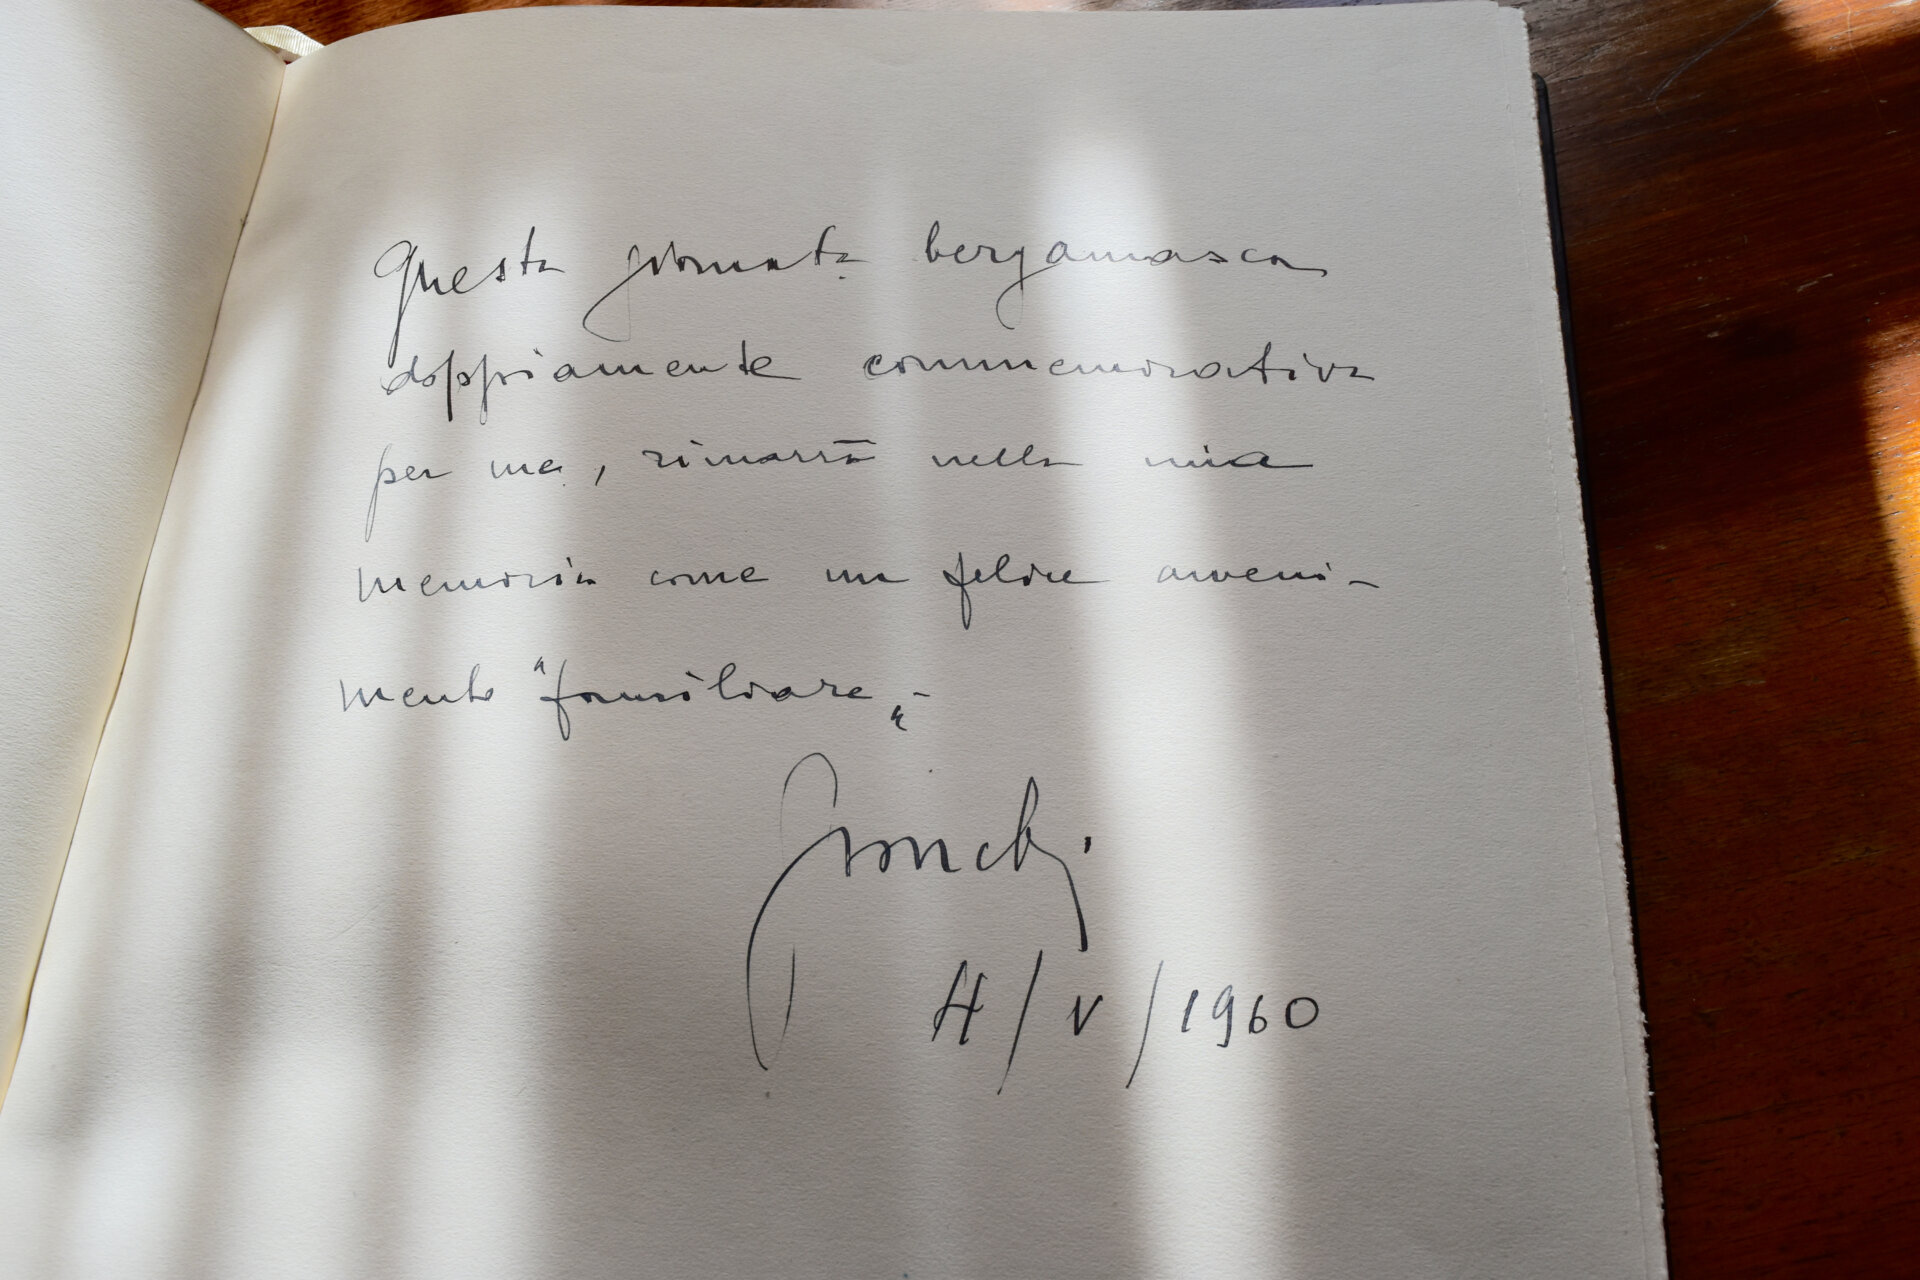 Questa giornata bergamasca
doppiamente commemorativa
per me, rimarrà nella mia
memoria come un felice avveni-
mento "familiare„-
Gronchi
4/V/1960